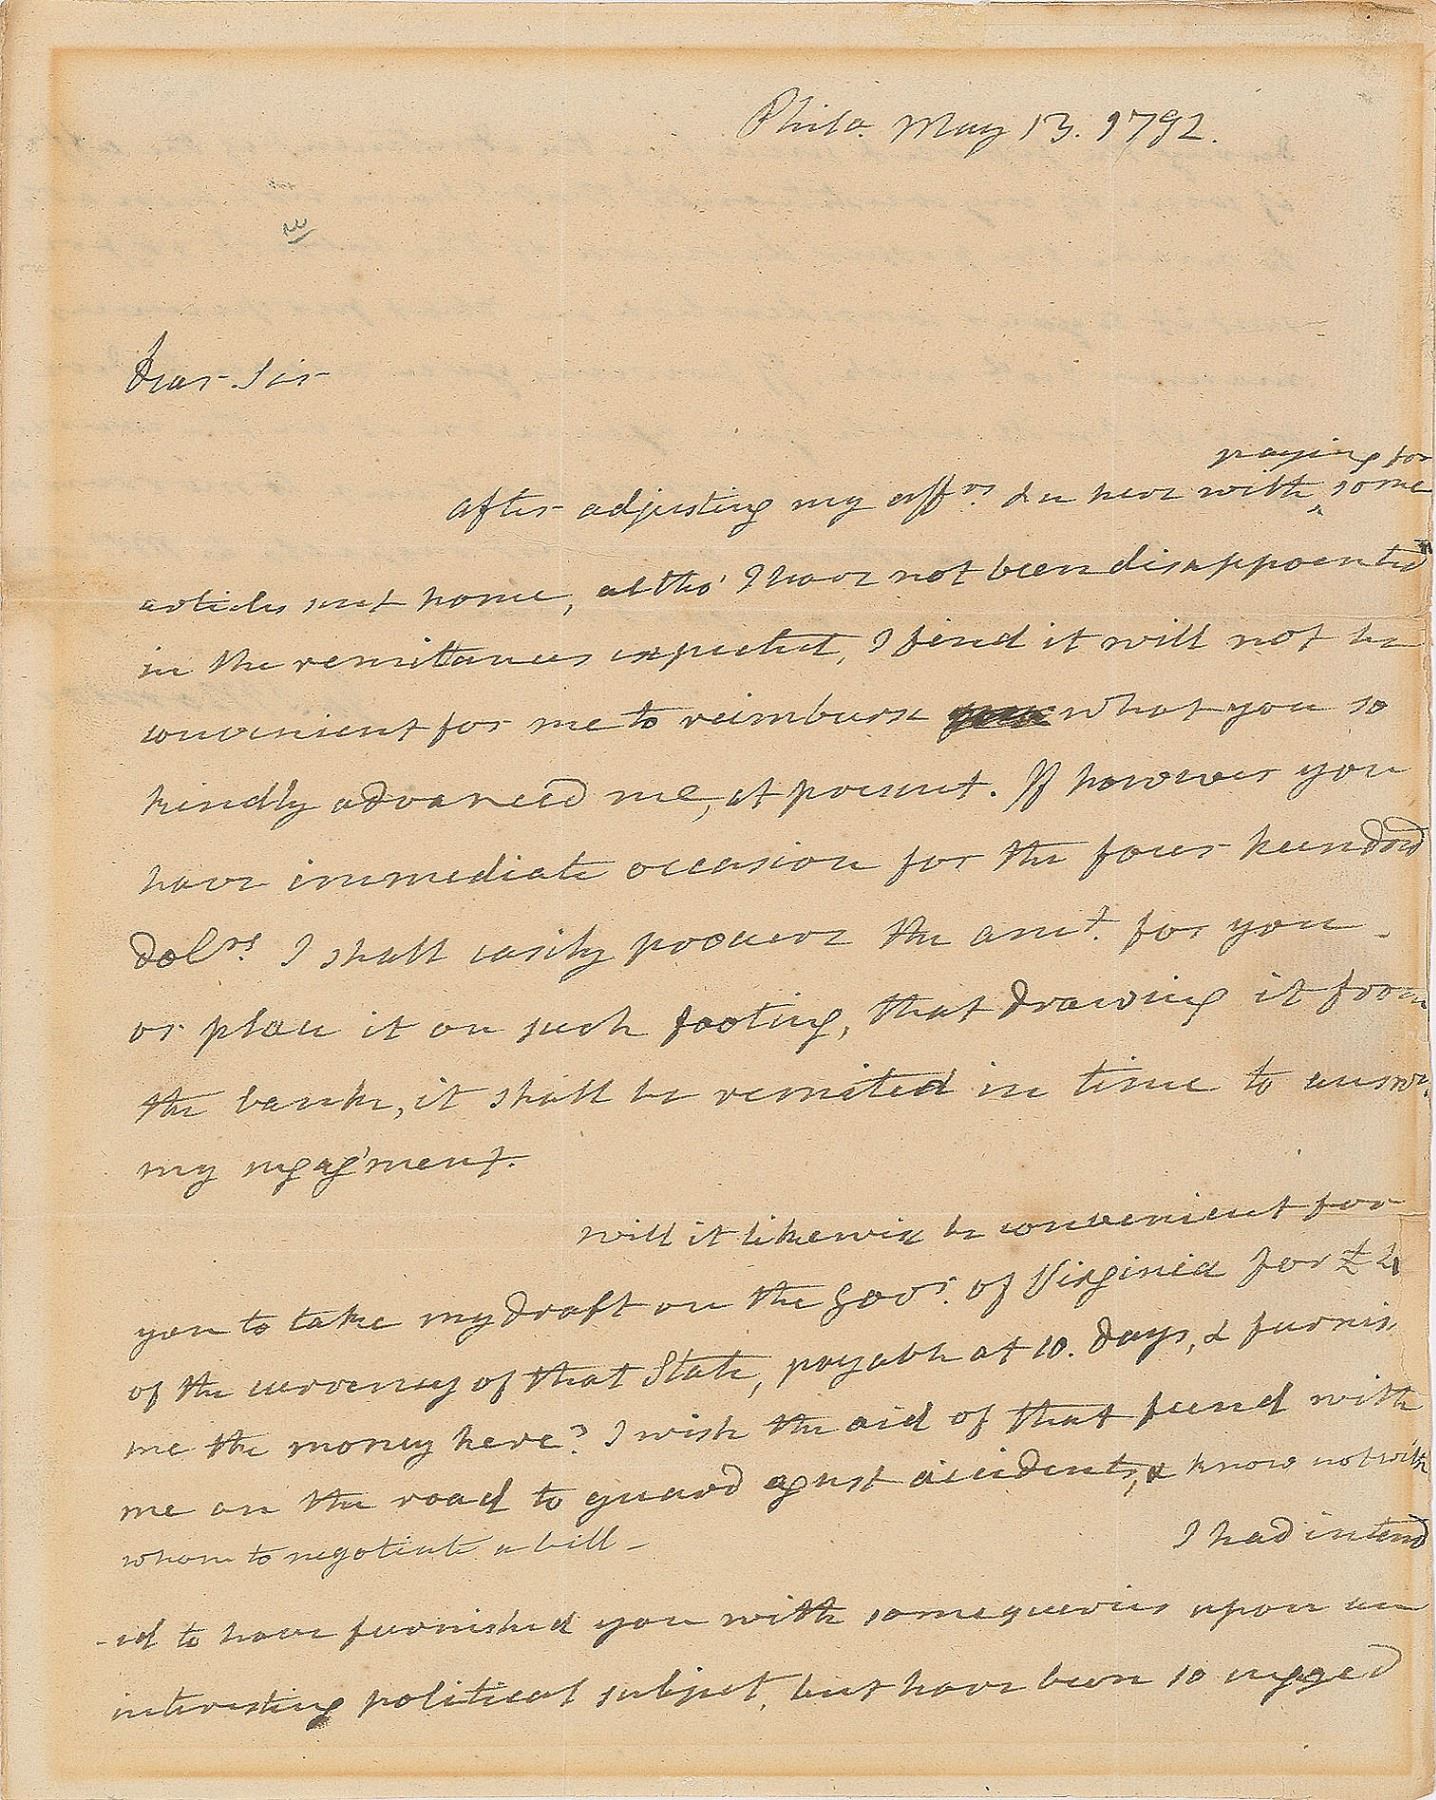 Phila. May 13. 1792.
Dear Sir
paying for
after adjusting my affrs. &c here with ‸ some
articles sent home, altho' I have not been disappointed
in the remittances expected, I find it will not be
convenient for me to reimburse what you so
kindly advanced me, at present. If however you
have immediate occasion for the four hundred
dolrs. I shall easily procure the amt. for you -
or place it on such footing, that drawing it from
the bank, it shall be remited in time to answr.
my engag'ment.
Will it likewise be convenient for
you to take my draft on the Govr. of Virginia for £
of the currency of that State, payable at 10. days, & furnis
me the money here? I wish the aid of that fund with
me on the road to guard agnst accidents, & know not with
whom to negotiate a bill -
I had intend
-ed to have furnished you with some queries upon an
interesting political subject, but have been so engaged